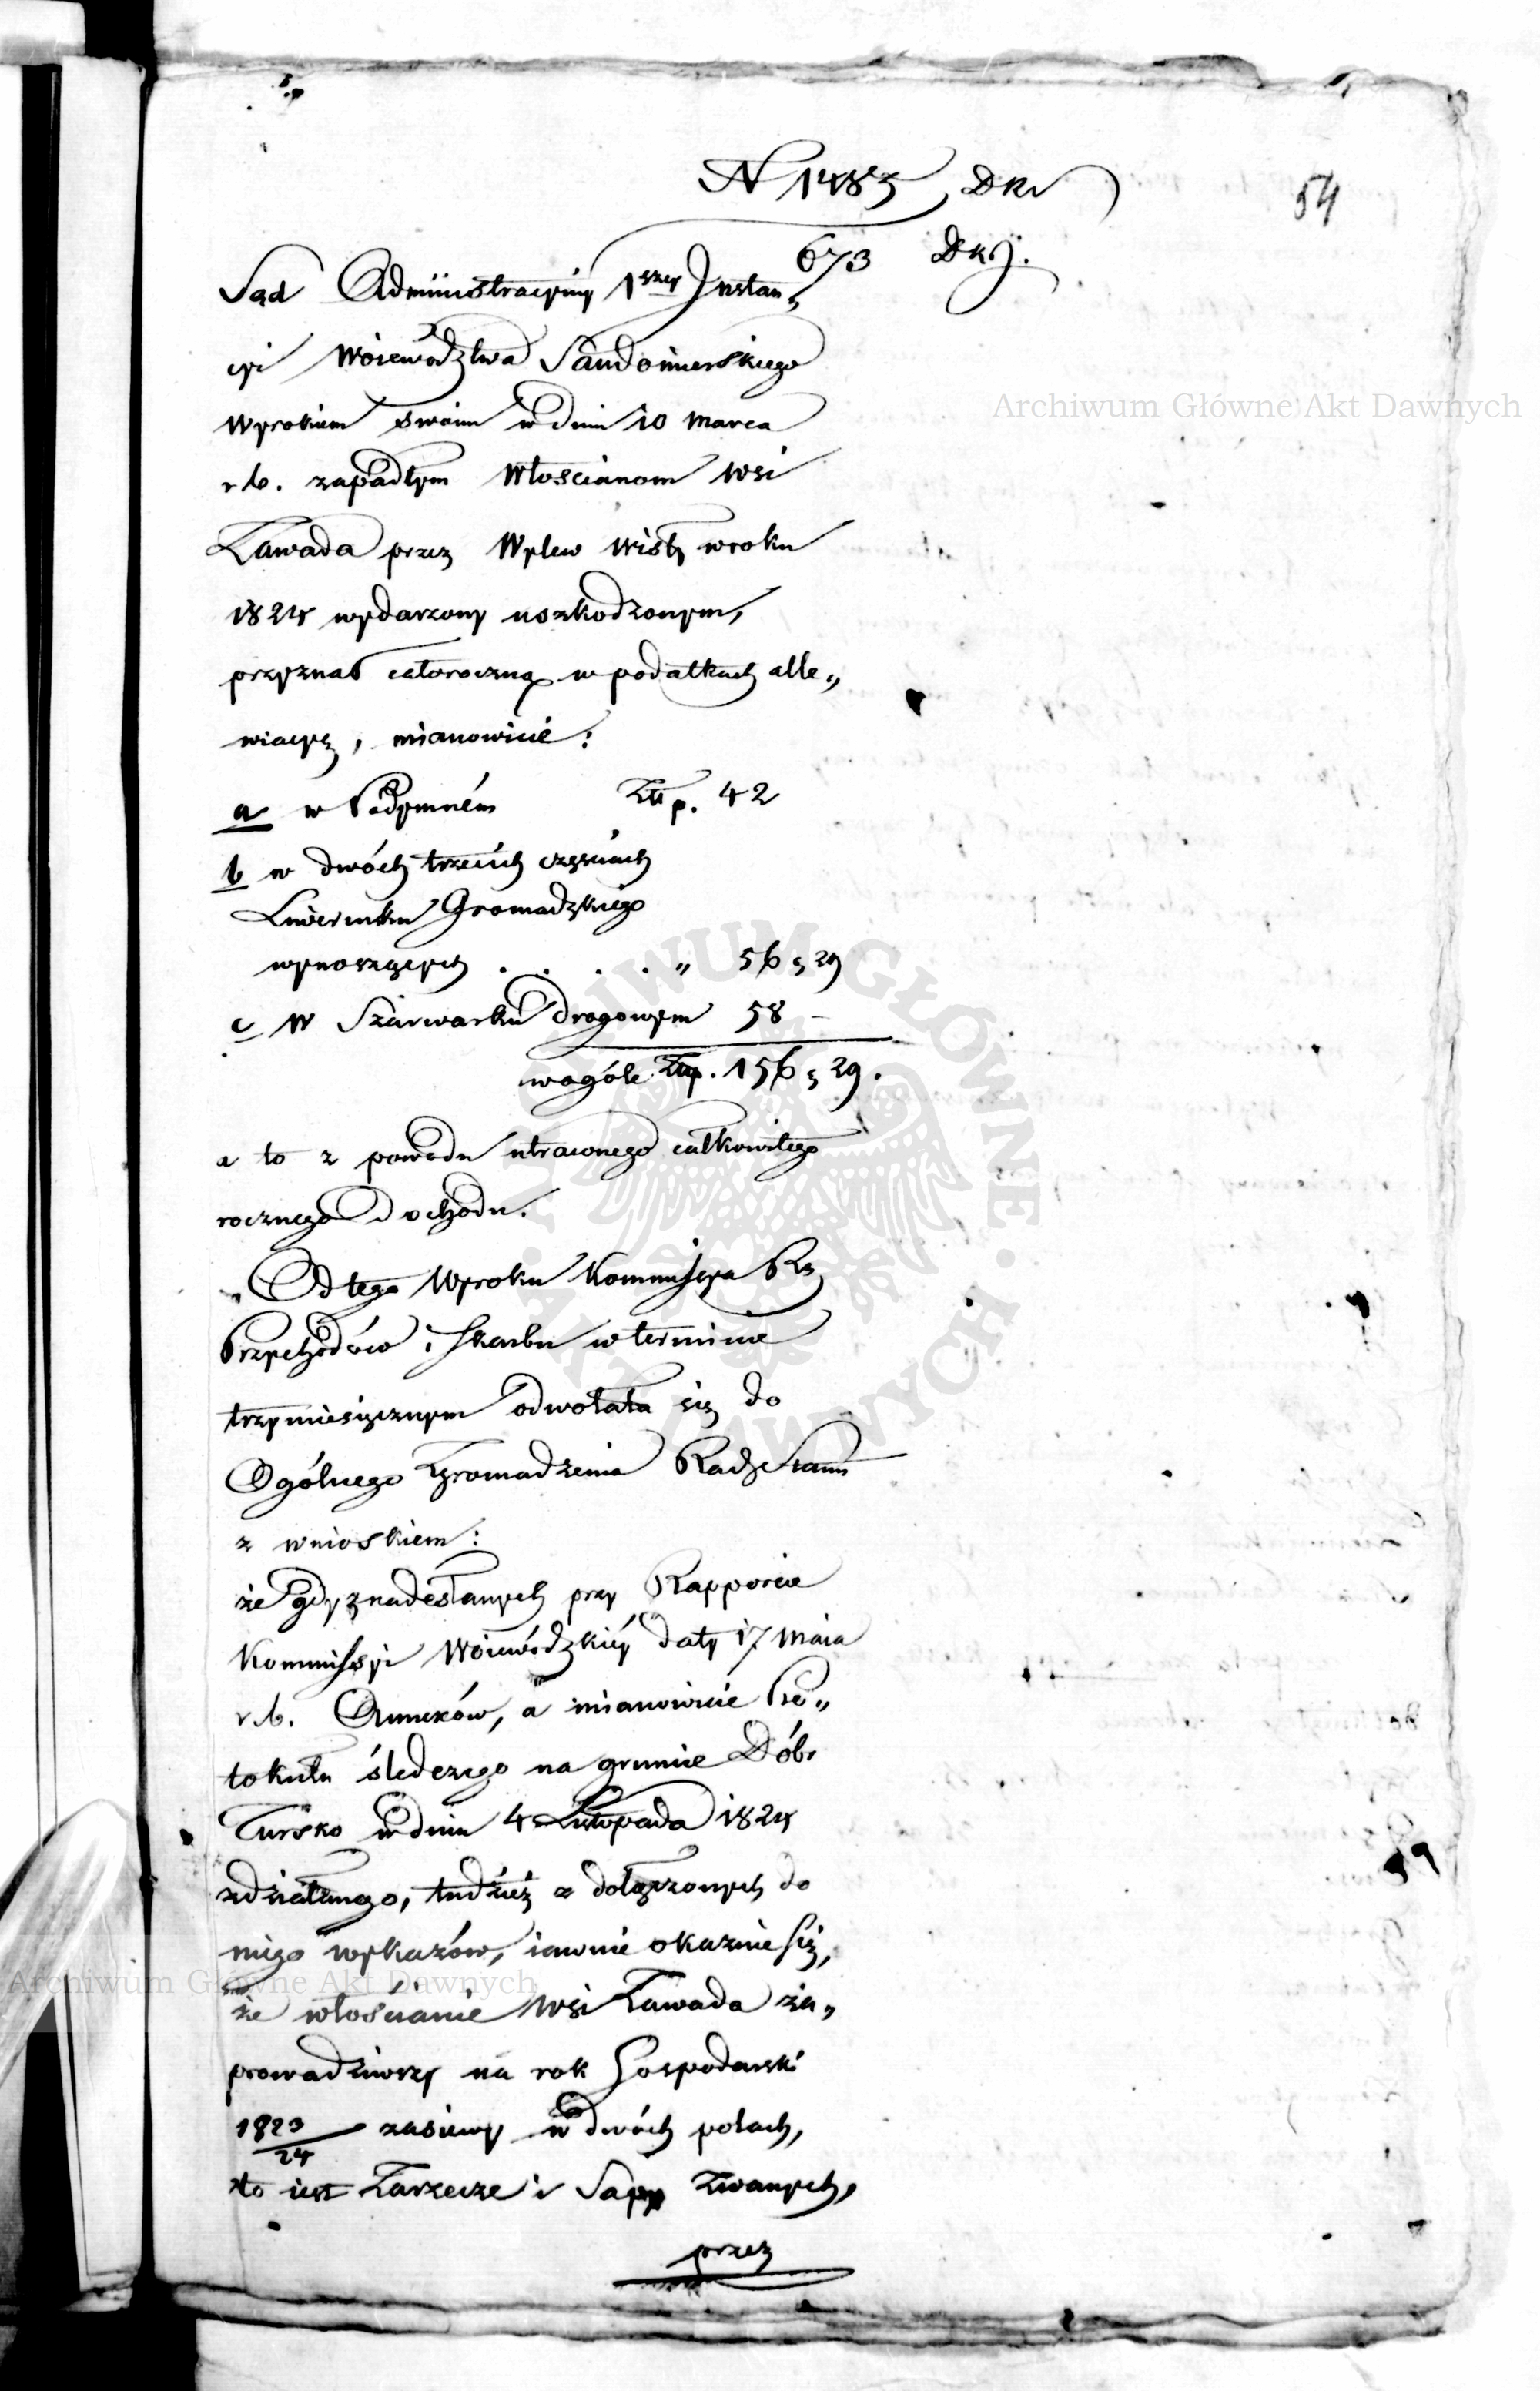 N 1485 DR
54
673 DRJ.
Sąd Administracyiny 1szey Instan„
cyi Woiewództwa Sandomierskiego
Wyrokiem swoim w dniu 10 Marca
r. b. zapadłym Włościanom Wsi
Zawada przez Wylew Wisły w roku
1824 wydarzony uszkodzonym,
przyznał całoroczną w podatkach alle„
wiacyę, mianowicie:
a w Podymném Złp. 42
b w dwóch trzecich częściach
Liwerunku Gromadzkiego
wynoszących . . . . „ 56 „ 29
c W Szarwarku drogowym 58 –
wogóle Złp. 156 „ 29.
a to z powodu utraconego całkowitego
rocznego dochodu.
Od tego Wyroku Kommissya Rz
Przychodów i Skarbu w terminie
trzymiesięcznym odwołała się do
Ogólnego Zgromadzenia Rady Stanu
z wnioskiem:
że gdy z nadesłanych przy Rapporcie
Kommissyi Woiewódzkiéy daty 17 Maia
r. b. Annexów, a mianowicie Pro„
tokułu śledczego na gruncie Dóbr
Tursko w dniu 4 Listopada 1824
zdziałanego, tudzież z dołączonych do
niego wykazów, iawnie okazuie się,
że włościanie Wsi Zawada za„
prowadziwszy na rok Gospodarski
1823/24 zasiewy w dwóch polach,
to iest Zarzecze i Sapy zwanych,
przez
Archiwum Główne Akt Dawnych
Archiwum Główne Akt Dawnych
ARCHIWUM GŁÓWNE · AKT DAWNYCH ·